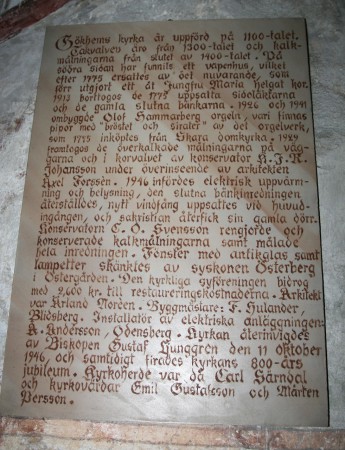 Gökhems kyrka är uppförd på 1100-talet.
Takvalven äro från 1300-talet och kalk-
målningarna från slutet av 1400-talet. På
södra sidan har funnits ett vapenhus, vilket
efter 1775 ersattes av det nuvarande, som
förr utgjort ett åt Jungfru Maria helgat kor.
1912 borttogos de 1775 uppsatta sideläktarna
och de gamla slutna bänkarna. 1926 och 1941
ombyggde Olof Hammarberg orgeln, vari finnas
pipor med "bröstet och sirater" av det orgelverk,
som 1775 inköptes från Skara domkyrka. 1929
framtogos de överkalkade målningarna på väg-
garna och i korvalvet av konservator H.J.R.
Johansson under överinseende av arkitekten
Axel Forssén. 1946 infördes elektrisk uppvärm-
ning och belysning, den slutna bänkinredningen
återställdes, nytt vindfång uppsattes vid huvud-
ingången, och sakristian återfick sin gamla dörr.
Konservatorn C. O. Svensson rengjorde och
konserverade kalkmålningarna samt målade
hela inredningen. Fönster med antikglas samt
lampetter skänktes av syskonen Österberg
i Östergården. Den kyrkliga syföreningen bidrog
med 2,600 kr. till restaureringskostnaderna. Arkitekt
var Ärland Noreen. Byggmästare: F. Hulander,
Blidsberg. Installatör av elektriska anläggningen:
A. Andersson, Odensberg. Kyrkan återinvigdes
av Biskopen Gustaf Ljunggren den 11 oktober
1946, och samtidigt firades kyrkans 800-års
jubileum. Kyrkoherde var då Carl Särndal
och kyrkovärdar Emil Gustafsson och Mårten
Persson.